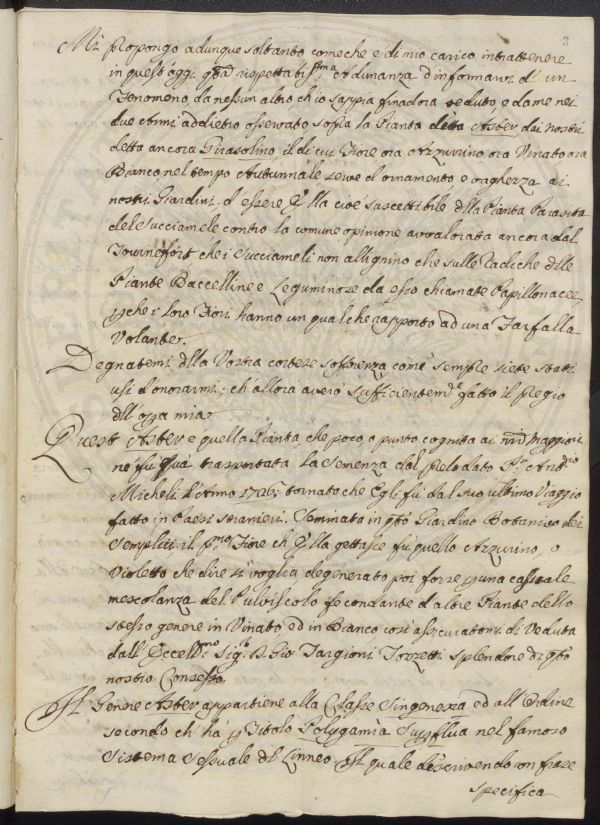 3
Mi Propongo adunque soltanto comeche e di mio carico intrattenere
in quest'oggi qta rispettabilissma Adunanza d'informarvi d'un
Fenomeno, da nessun altro ch'io sappia finadora veduto, e da me nei
due Anni addietro osservato sopra la Pianta detta Aster dai nostri
detta ancora Girasolino, il di cui Fiore ora Azzurrino ora Vinato ora
Bianco nel tempo Autunnale serve d'ornamento, e vaghezza ai
nostri Giardini. d'essere Ella cioè suscettibile dlla Pianta Parasita
del Succiamele contro la comune opinione avvalorata ancora dal
Tournefort che i Succiameli non allignino che sulle Radiche dlle
Piante Baccelline e Leguminose da esso chiamate Papillonacee
pche i loro Fiori hanno un qualche rapporto ad una Farfalla
Volante.
Degnatemi dlla Vostra cortese sofferenza come sempre siete stati
usi d'onorarmi; ch'allora averò sufficientemte fatto il Pregio
dll' opa mia.
Quest' Aster e quella Pianta, che poco o punto cognita ai nri Maggiori
ne fù quà trasportata la Semenza dal Prelodato Pr Antonio
Micheli l'Anno 1736: tornato che Egli fù dal suo ultimo Viaggio
fatto in Paesi stranieri. Seminata in qto Giardino Botanico dei
Semplici il pmo Fiore che Ella gettasse fù quello Azzurino, o
Violetto che dire si voglia degenerato poi forse p una casuale
mescolanza del Pulviscolo fecondante d'altre Piante dello
stesso genere in Vinato ed in Bianco così assicuratomi di Veduta
dall' Eccellmo Sigr D. Gio Targioni Tozzetti splendore di qto
nostro Consesso
Il Genere Aster appartiene alla Classe Singenesia ed all' Ordine
secondo ch' hà p Titolo Polygamia Supflua nel famoso
Sistema Sessuale del Linneo Il quale discrivendo con frase
specifica